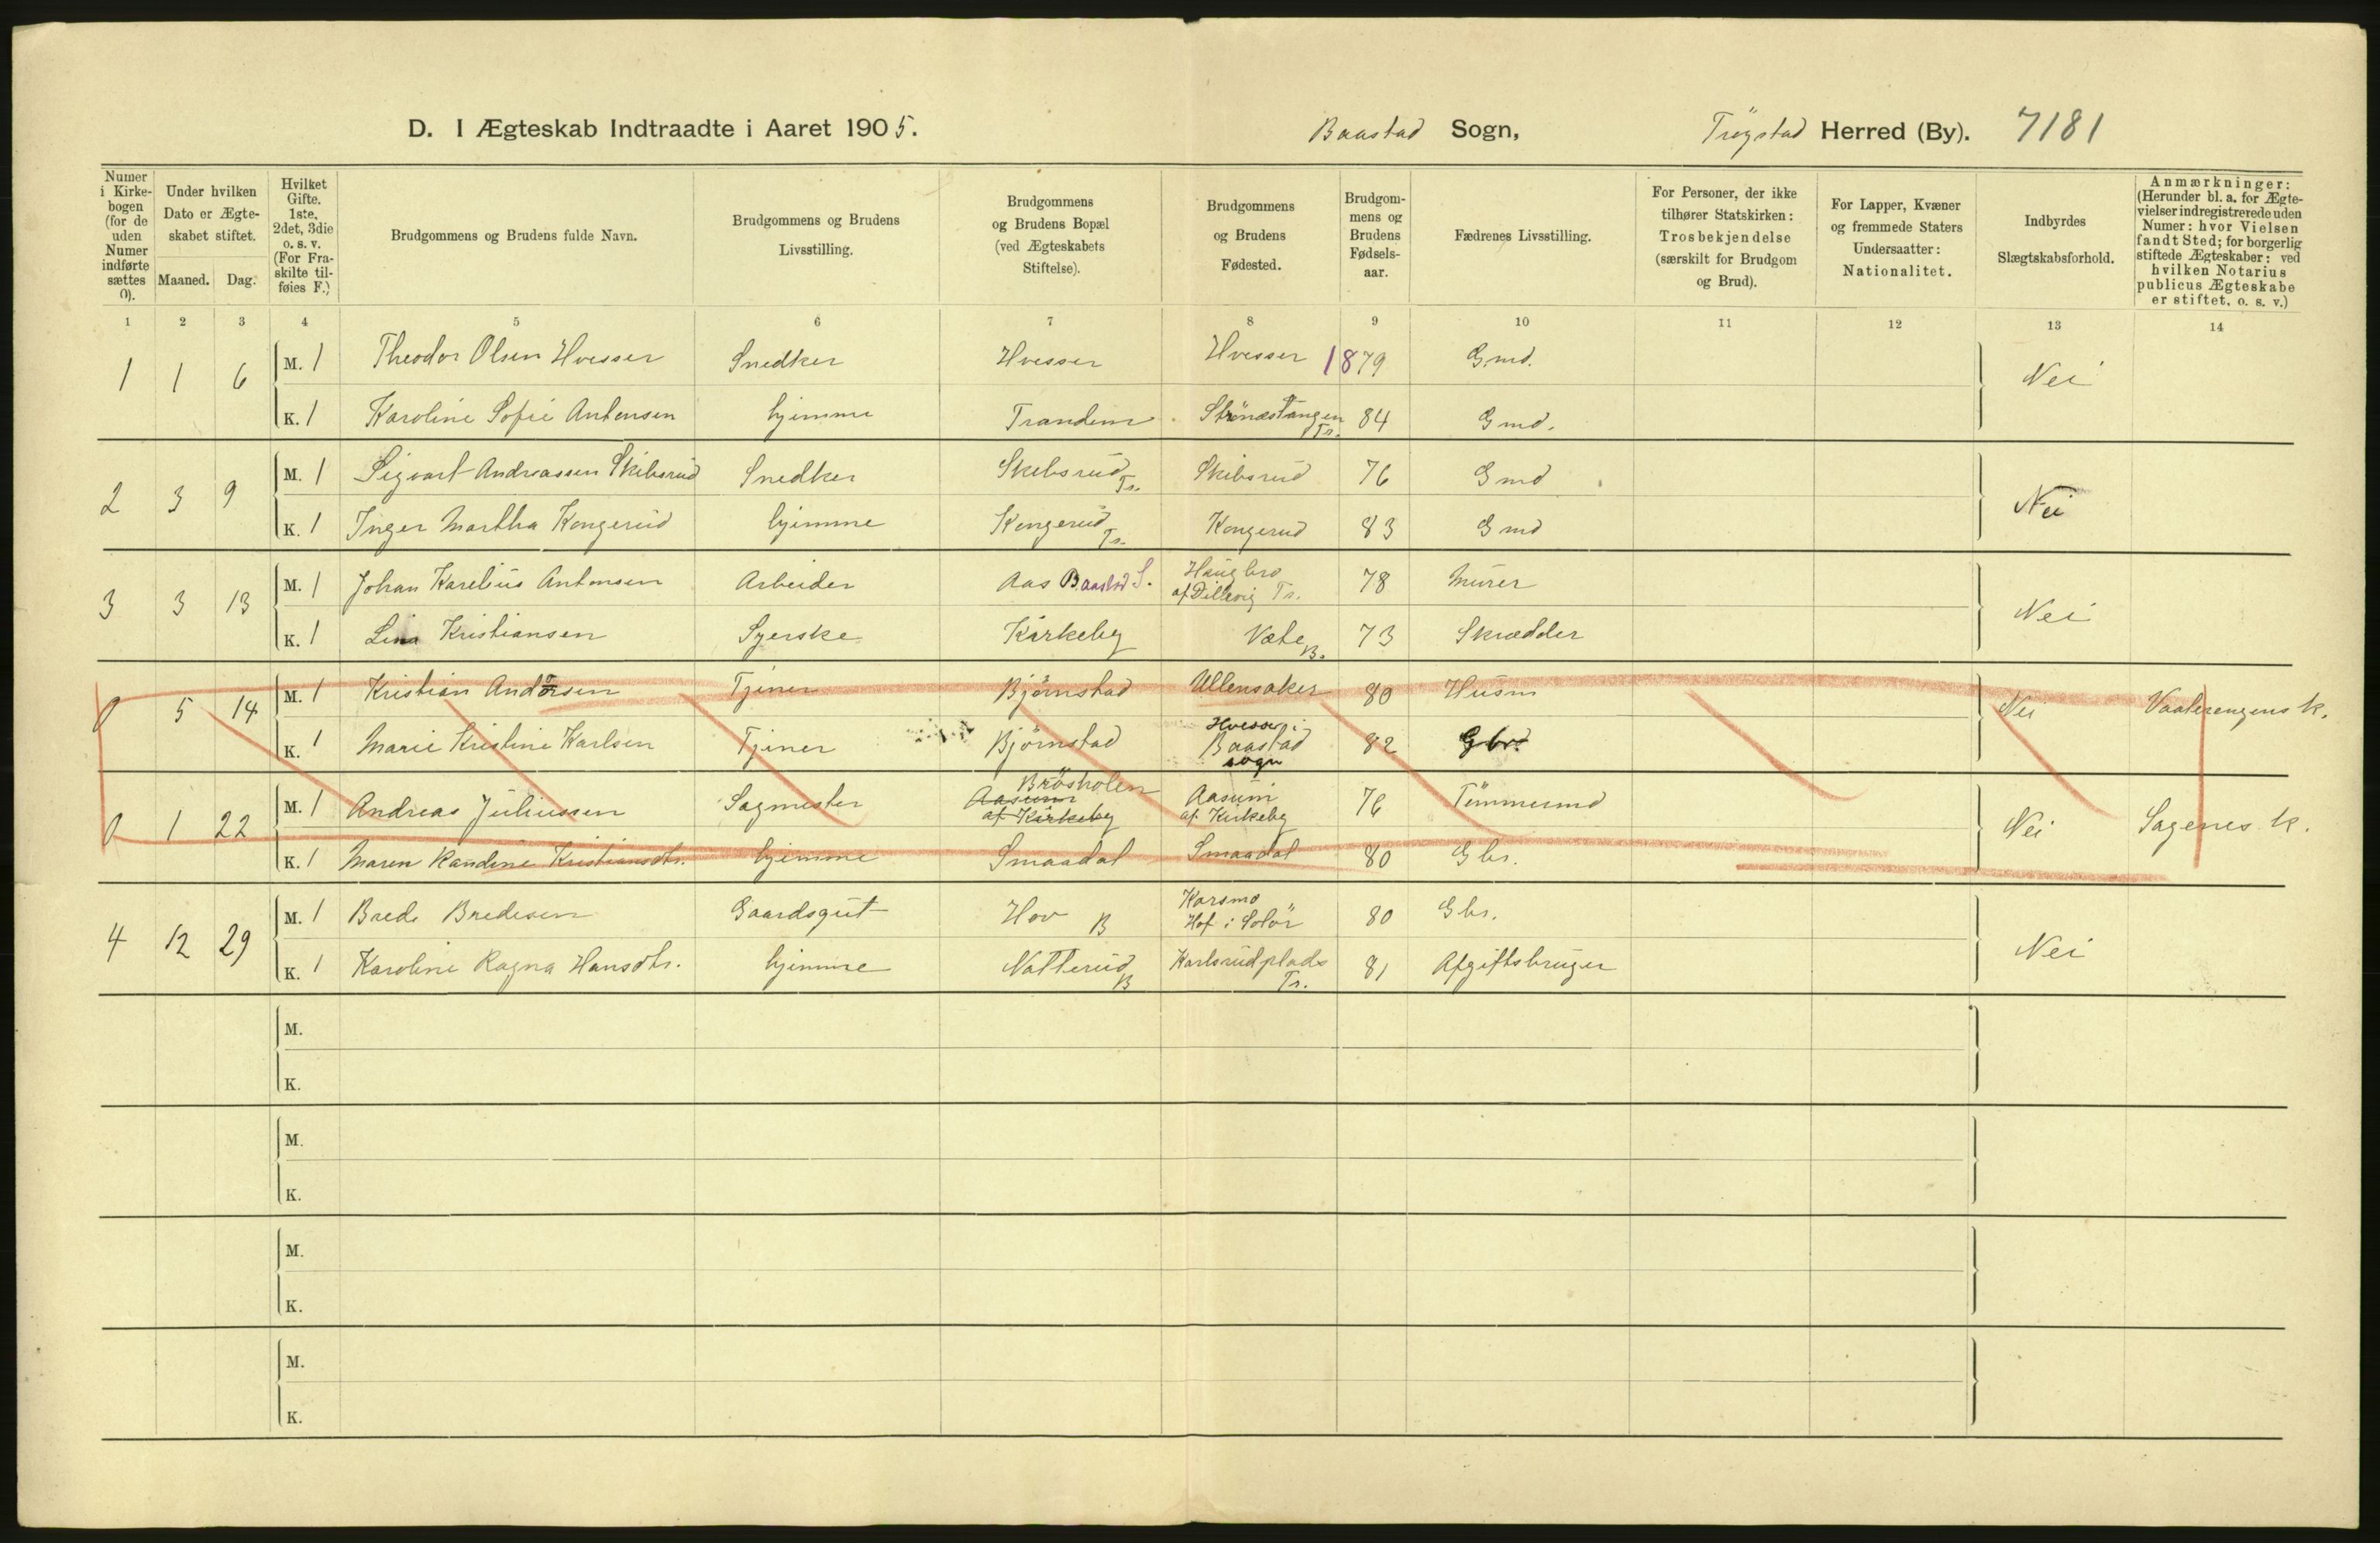 D. I Ægteskab Indtraadte i Aaret 1905. Baastad Sogn, Trøgstad Herred (By). 7181
Numer i Kirkebogen (for de uden Numer indførte sættes 0).
Under hvilken Dato er Ægteskabet stiftet.
Maaned. Dag.
Hvilket Gifte. 1ste, 2det, 3die o. s. v. (For Fraskilte tilføies F.)
Brudgommens og Brudens fulde Navn.
Brudgommens og Brudens Livsstilling.
Brudgommens og Brudens Bopæl (ved Ægteskabets Stiftelse).
Brudgommens og Brudens Fødested.
Brudgommens og Brudens Fødselsaar.
Fædrenes Livsstilling.
For Personer, der ikke tilhører Statskirken: Trosbekjendelse (særskilt for Brudgom og Brud).
For Lapper, Kvæner og fremmede Staters Undersaatter: Nationalitet.
Indbyrdes Slægtskabsforhold.
Anmærkninger: (Herunder bl. a. for Ægtevielser indregistrerede uden Numer: hvor Vielsen fandt Sted; for borgerlig stiftede Ægteskaber: ved hvilken Notarius publicus Ægteskabe er stiftet, o. s. v.)
1 2 3 4 5 6 7 8 9 10 11 12 13 14
1 1 6 M. 1 Theodor Olsen Hvesser Snedker Hvesser Hvesser 1879 Gmd. Nei
K. 1 Karoline Sofie Antonsen hjemme Trandem Strönæstangen Tr. 84 Gmd.
2 3 9 M. 1 Sigvart Andreassen Skibsrud Snedker Skibsrud Tr. Skibsrud 76 Gmd Nei
K. 1 Inger Martha Kongerud hjemme Kongerud Tr. Kongerud 83 Gmd
3 3 13 M. 1 Johan Karelius Antonsen Arbeider Aas Baastad S. Haugbro af Dillevig Tr. 78 Murer Nei
K. 1 Lina Kristiansen Syerske Kirkeby Væte B. 73 Skrædder
0 5 14 M. 1 Kristian Andorsen Tjener Björnstad Ullensaker 80 Husm Nei Vaalerengens k.
K. 1 Marie Kristine Karlsen Tjener Björnstad Hvesser i Baastad sogn 82 Gbr.
0 1 22 M. 1 Andreas Juliussen Sagmester Brösholen Aasum af Kirkeby Aasum af Kirkeby 76 Tömmermd Nei Sagenes k.
K. 1 Maren Randine Kristiansdtr. hjemme Smaadal Smaadal 80 Gbr.
4 12 29 M. 1 Brede Bredesen Gaardsgut Hov B Karsmo Hof i Solör 80 Gbr. Nei
K. 1 Karoline Ragna Hansdtr. hjemme Natterud B Karlsrudplads Tr. 81 Afgiftsbruger
M.
K.
M.
K.
M.
K.
M.
K.